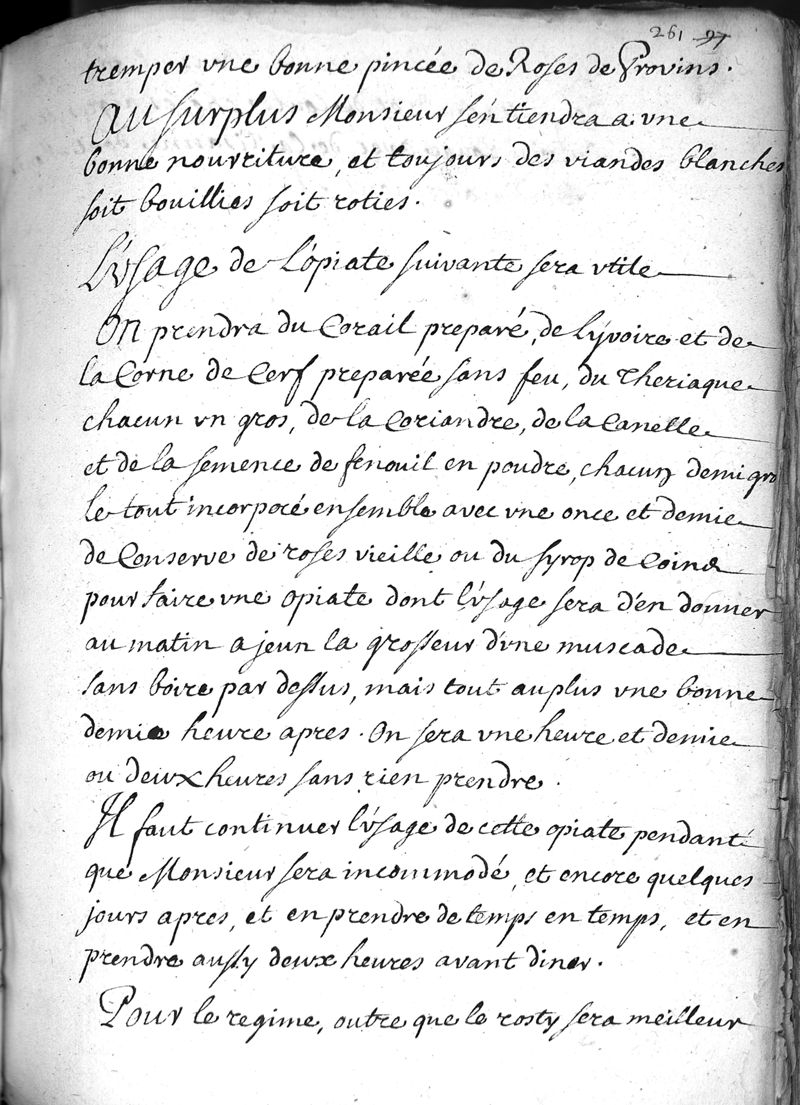 261 97
tremper vne bonne pincée de Roses de Provins.
Au surplus Monsieur s'en tiendra a vne
bonne nourriture, et toujours des viandes blanches
soit bouillies soit roties.
L'vsage de l'opiate suivante sera vtile
On prendra du Corail preparé, de l'yvoire et de
la Corne de Cerf preparée sans feu, du Theriaque
chacun vn gros, de la Coriandre, de la Canelle
et de la semence de fenouil en poudre, chacun demi gro
le tout incorporé ensemble avec vne once et demie
de Conserve de roses vieille ou du syrop de Coins
pour faire vne opiate dont l'vsage sera d'en donner
au matin a jeun la grosseur d'vne muscade
sans boire par dessus, mais tout au plus vne bonne
demie heure apres. On sera vne heure et demie
ou deux heures sans rien prendre.
Il faut continuer l'vsage de cette opiate pendant
que Monsieur sera incommodé, et encore quelques
jours apres, et en prendre de temps en temps, et en
prendre aussy deux heures avant diner.
Pour le regime, outre que le rosty sera meilleur